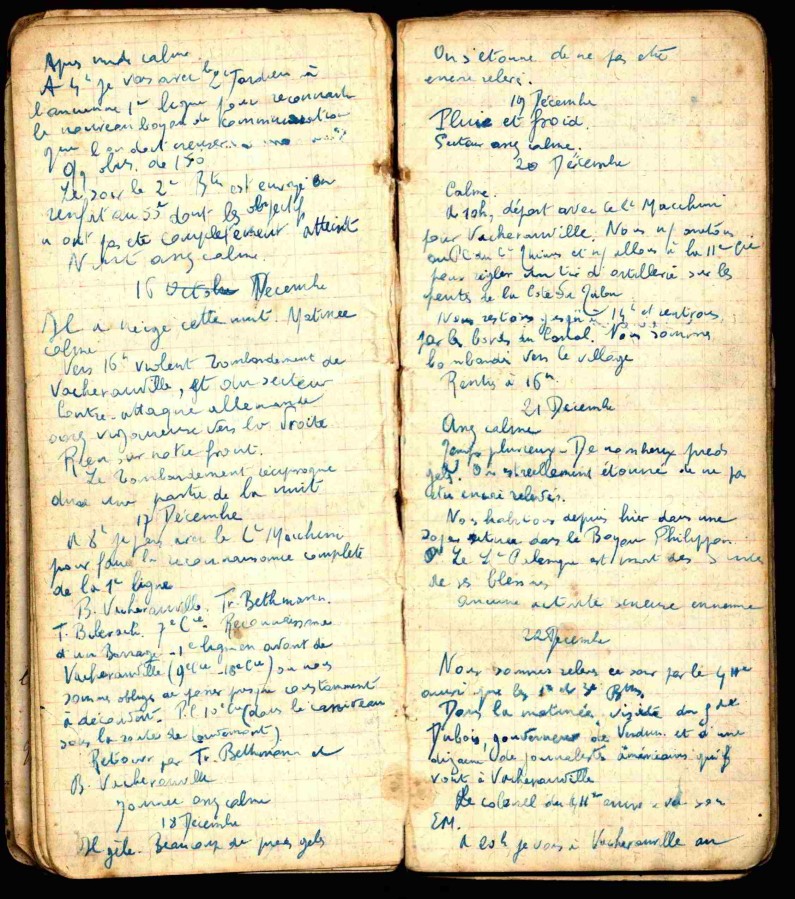 Apres midi calme.
A 4h je vais avec le Lt Tardieu à
l'ancienne 1re ligne pour reconnaitre
le nouveau boyau de communication
que l'on doit creuser
qq obus de 150
Le soir le 2e Bton est envoyé en
renfort au 55e dont les objectifs
n'ont pas été complètement atteints
Nuit assez calme.
16 Decembre
Il a neigé cette nuit. Matinee
calme
Vers 16h violent bombardement de
Vacherauville, et du secteur
Contre-attaque allemande
assez vigoureuse vers la droite
Rien sur notre front.
Le bombardement réciproque
dure une partie de la nuit
17 Décembre
A 8h je pars avec le Lt Macchini
pour faire la reconnaissance complète
de la 1re ligne
B. Vacherauville. Tr. Bethmann.
T. Biberach. 7e Cie. Reconnaissance
d'un Barrage - 1e ligne en avant de
Vacherauville (9e Cie - 18e Cie) où nous
sommes obligés de passer presque constamment
à découvert. P.C. 10e Cie (dans le
sous la route de Louvemont).
Retour par Tr. Bethmann et
B. Vacherauville
Journee assez calme
18 Décembre
Il gèle. Beaucoup de pieds gelés
On s'etonne de ne pas etre
encore relevé.
19 Décembre
Pluie et froid.
Secteur assez calme.
20 Décembre
Calme.
A 10h, départ avec le Lt Macchini
pour Vacherauville. Nous n/ arretons
au PC du Ct et n/ allons à la 11e Cie
pour régler un tir d'artillerie sur les
pentes de la Cote du Talou
Nous restons jusqu'à 14h et rentrons
par les bords du Canal. Nous sommes
bombardés vers le village
Rentrés à 16h.
21 Decembre
Assez calme
Temps pluvieux - De nombreux pieds
gelés. On est reellement étonné de ne pas
etre encore relevés.
Nous habitons depuis hier dans une
sape située dans le Boyau Philippon.
Le Lt est mort des suites
de ses blessures
aucune activité serieuse ennemie
22 Decembre
Nous sommes relevés ce soir par le 4
ainsi que les 1er et 3e Btons
Dans la matinée, visite du gal
Dubois, gouverneur de Verdun et d'une
dizaine de journalistes américains qui
vont à Vacherauville
Le colonel du 4 arrive avec son
EM.
A 20h je vais à Vacherauville au